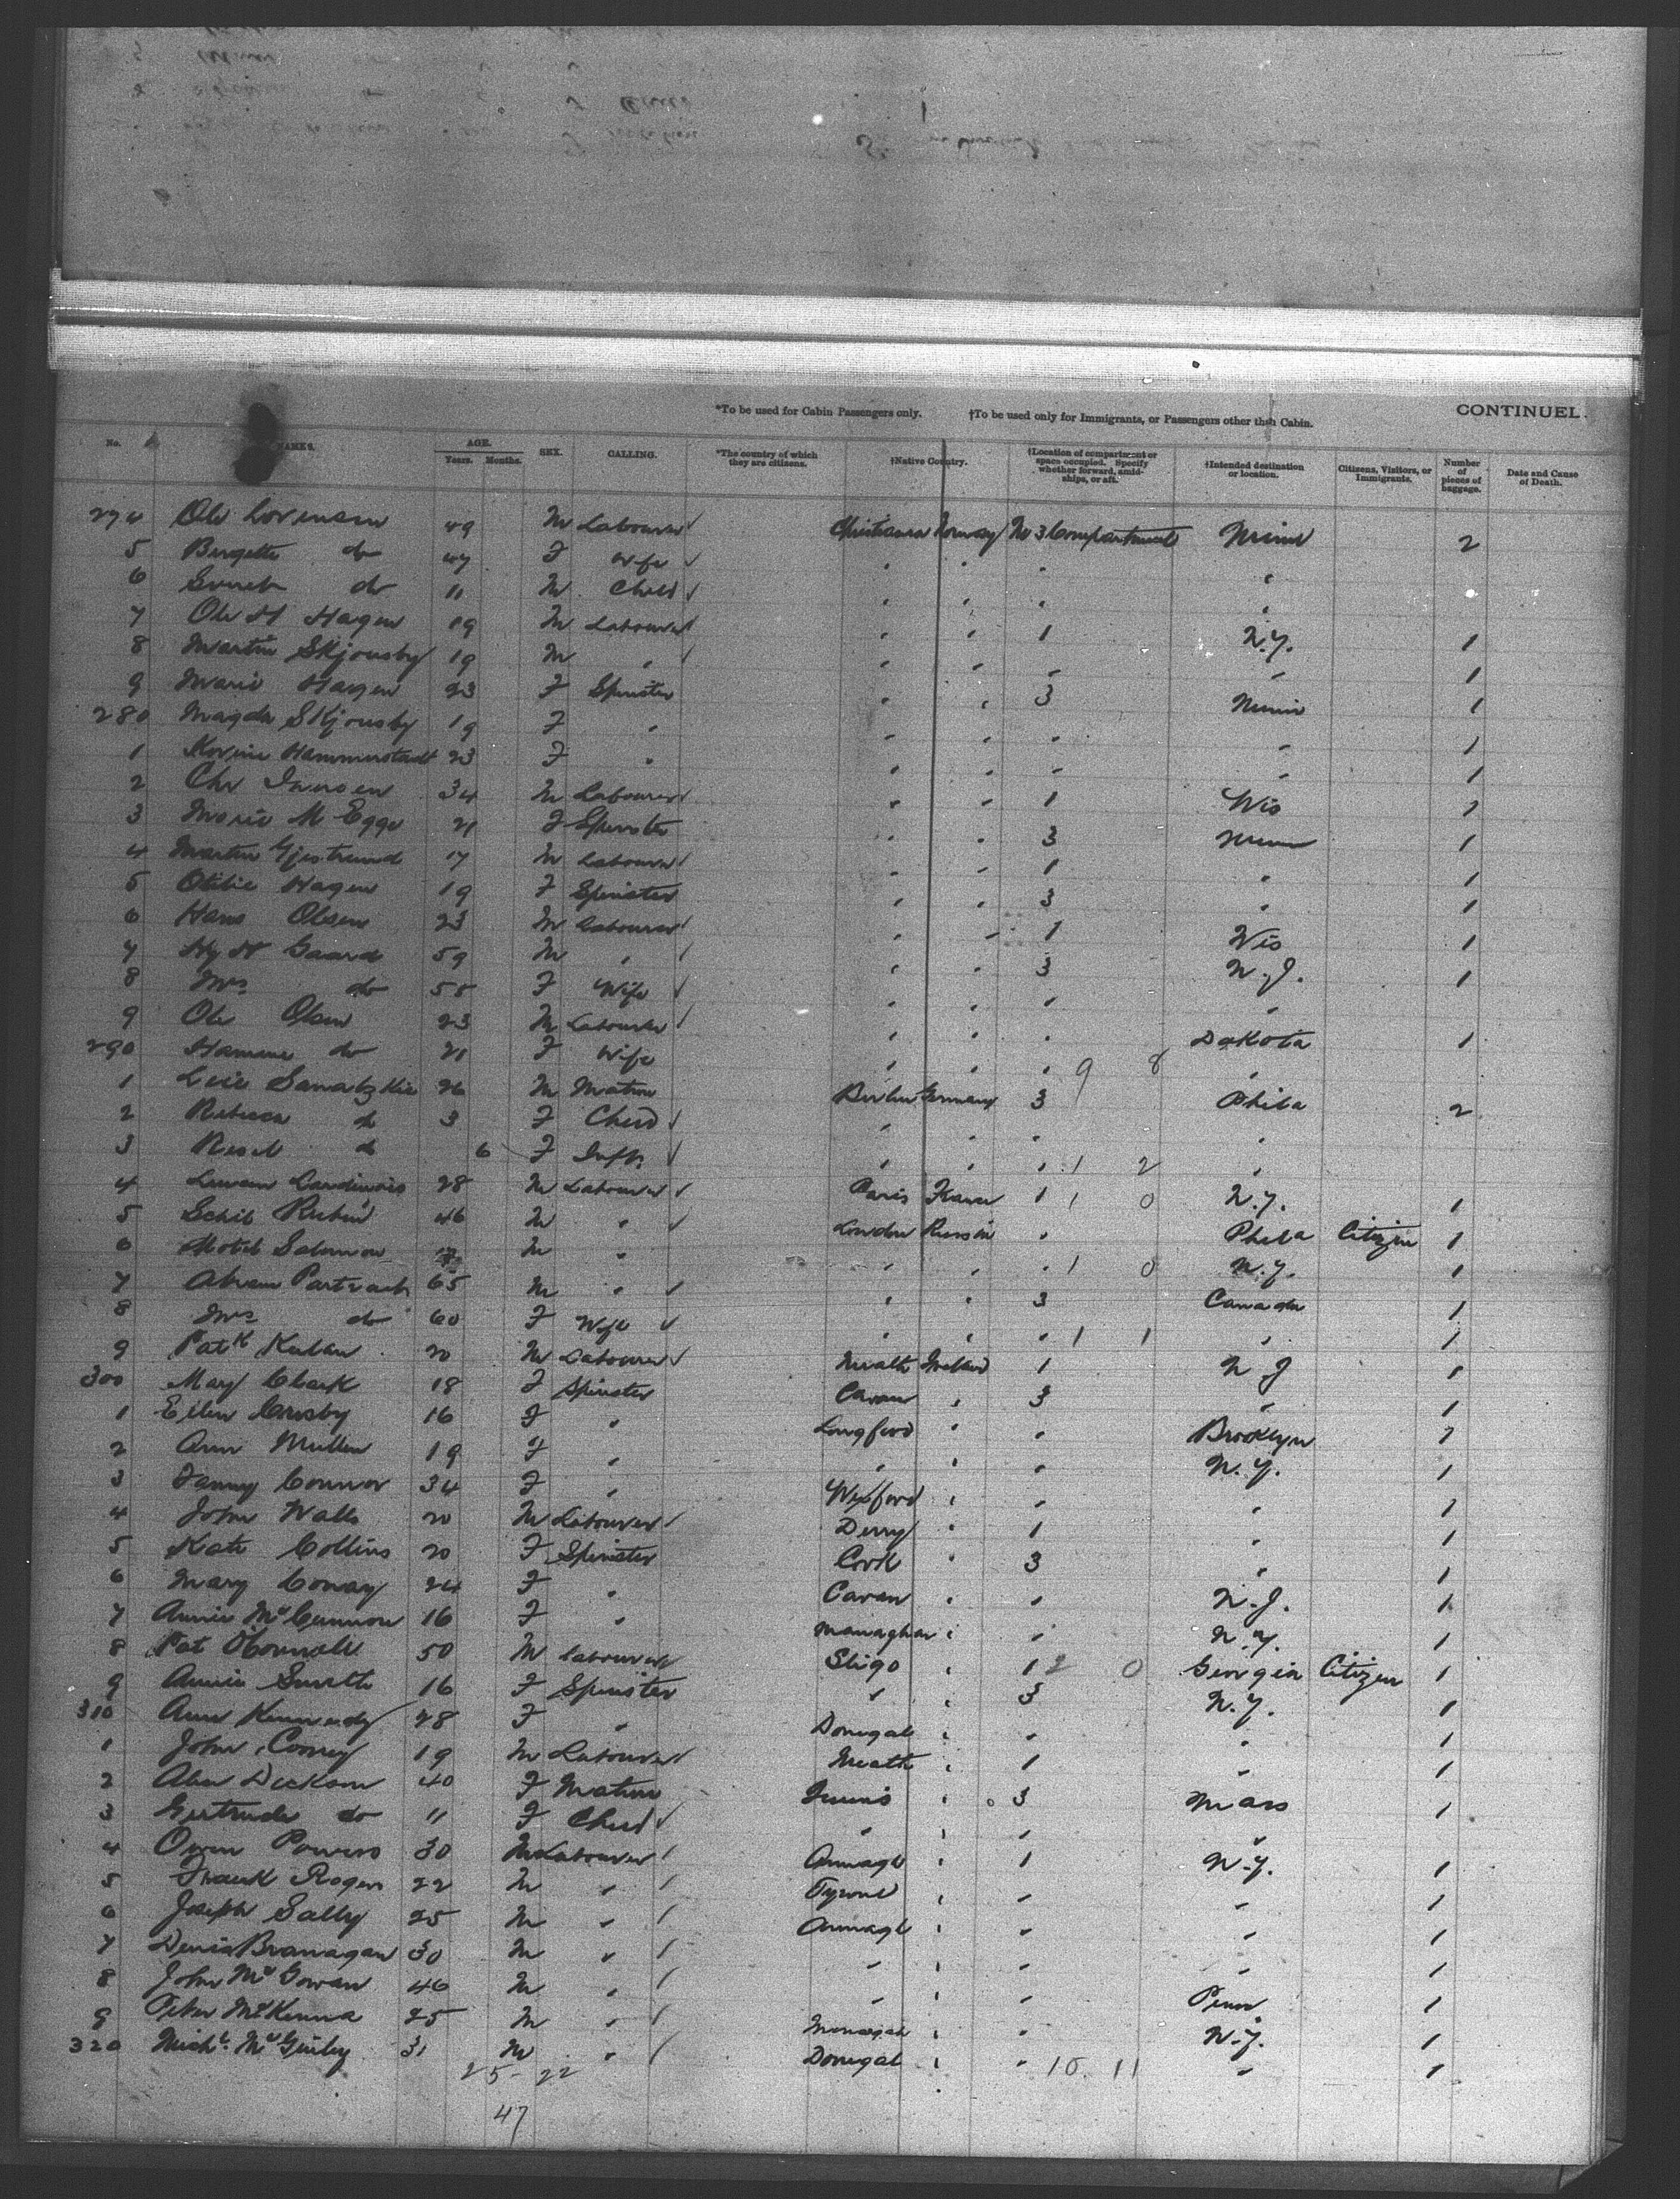 *To be used for Cabin Passengers only. †To be used only for Immigrants, or Passengers other than Cabin. CONTINUEL.
No. NAMES. AGE. Years. Months. SEX. CALLING. *The country of which they are citizens. †Native Country. †Location of compartment or space occupied. Specify whether forward, amid-ships, or aft. †Intended destination or location. Citizens, Visitors, or Immigrants. Number of pieces of baggage. Date and Cause of Death.
274 Ole Lorensen 49 M Labourer Christiania Norway No 3 Compartment Minn 2
5 Bergette do 47 F Wife " " " "
6 do 11 M Child " " " "
7 Ole H Hagen 19 M Labourer " " 1 N.Y. 1
8 Martin Skjousby 19 M " " " " " 1
9 Marie Hagen 23 F Spinster " " 3 Minn 1
280 Magda Skjousby 19 F " " " " " 1
1 Hammerstadt 23 F " " " " " 1
2 Chr Iversen 34 M Labourer " " 1 Wis 1
3 Marie M Egge 21 F Spinster " " 3 Minn 1
4 Martin 17 M Labourer " " 1 " 1
5 Otilie Hagen 19 F Spinster " " 3 " 1
6 Hans Olsen 23 M Labourer " " 1 Wis 1
7 Hy H Gaard 59 M " " " 3 N.J. 1
8 Mrs do 55 F Wife " " " "
9 Ole Olsen 23 M Labourer " " " Dakota 1
290 do 21 F Wife " " " 9 8 "
1 26 M Matron Berlin Germany 3 Phila 2
2 Rebecca do 3 F Child " " " "
3 do 6 F Inft " " " 1 2 "
4 28 M Labourer Paris France 1 1 0 N.Y. 1
5 Schil Rubin 46 M " London Russia " Phila Citizen 1
6 Motel Salomon M " " " " 1 0 N.Y. 1
7 Abram 65 M " " " 3 Canada 1
8 Mrs do 60 F Wife " " " 1 1 " 1
9 Patk 20 M Labourer Meath Ireland 1 N J 1
300 Mary Clark 18 F Spinster Cavan " 3 " 1
1 Ellen Crosby 16 F " Longford " " Brooklyn 1
2 Ann Mullen 19 F " " " " N.Y. 1
3 Fanny Connor 34 F " Wexford " " " 1
4 John Walls 20 M Labourer Derry " 1 " 1
5 Kate Collins 20 F Spinster Cork " 3 " 1
6 Mary Conway 24 F " Cavan " " N.J. 1
7 Annie McCunnon 16 F " Monaghan " " N.Y. 1
8 Pat O'Connell 50 M Labourer Sligo " 1 2 0 Georgia Citizen 1
9 Annie Smith 16 F Spinster " " 3 N.Y. 1
310 Ann Kennedy 28 F " Donegal " " " 1
1 John Cooney 19 M Labourer Meath " 1 " 1
2 Dickson 40 F Matron " 3 Mass 1
3 Gertrude do 11 F Child " " " "
4 Owen Powers 30 M Labourer Armagh " 1 N.Y. 1
5 Frank Rogers 22 M " Tyrone " " " 1
6 Joseph Sally 25 M " Armagh " " " 1
7 Denis Branagan 30 M " " " " " 1
8 John McGowan 46 M " " " " Penn 1
9 Peter McKenna 25 M " Monaghan " " N.Y. 1
320 Michl. McGinley 31 M " Donegal " " 10 11 " 1
25-22
47